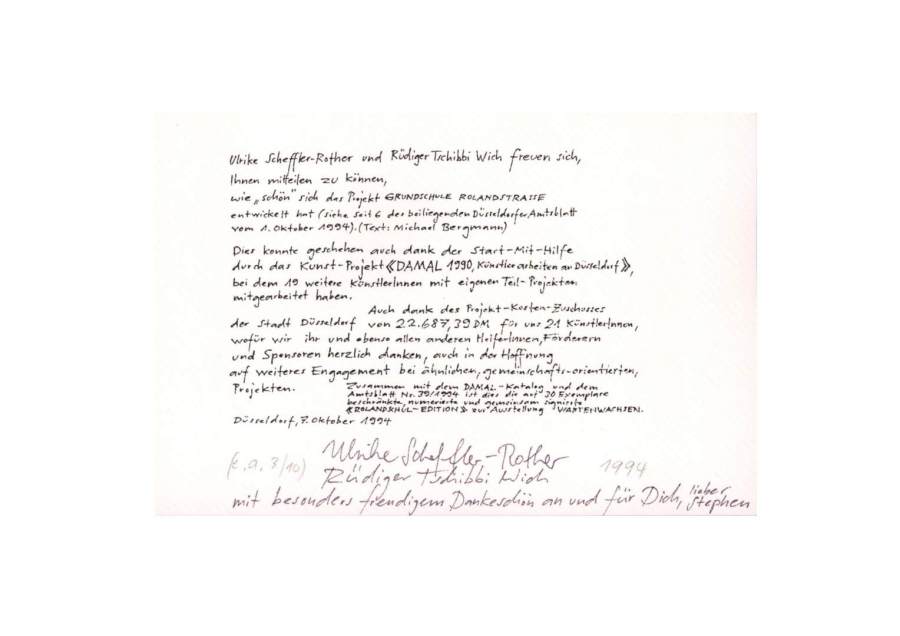 Ulrike Scheffler-Rother und Rüdiger Tschibbi Wich freuen sich,
Ihnen mitteilen zu können,
wie „schön" sich das Projekt GRUNDSCHULE ROLANDSTRASSE
entwickelt hat (siehe Seite 6 des beiliegenden Düsseldorfer Amtsblatt
vom 1. Oktober 1994). (Text: Michael Bergmann)
Dies konnte geschehen auch dank der Start-Mit-Hilfe
durch das Kunst-Projekt《DAMAL 1990, Künstlerarbeiten an Düsseldorf》,
bei dem 19 weitere KünstlerInnen mit eigenen Teil-Projekten
mitgearbeitet haben.
Auch dank des Projekt-Kosten-Zuschusses
der Stadt Düsseldorf von 22.687,39 DM für uns 21 KünstlerInnen,
wofür wir ihr und ebenso allen anderen HelferInnen, Förderern
und Sponsoren herzlich danken, auch in der Hoffnung
auf weiteres Engagement bei ähnlichen, gemeinschafts-orientierten,
Projekten.
Zusammen mit dem DAMAL-Katalog und dem
Amtsblatt Nr. 39/1994 ist dies die auf 30 Exemplare
beschränkte, numerierte und gemeinsam signierte
《ROLANDSCHUL-EDITION》 zur Ausstellung WARTENWACHSEN.
Düsseldorf, 7. Oktober 1994
(e.a. 3/10) Ulrike Scheffler-Rother 1994
Rüdiger Tschibbi Wich
mit besonders freudigem Dankeschön an und für Dich, lieber
Stephen